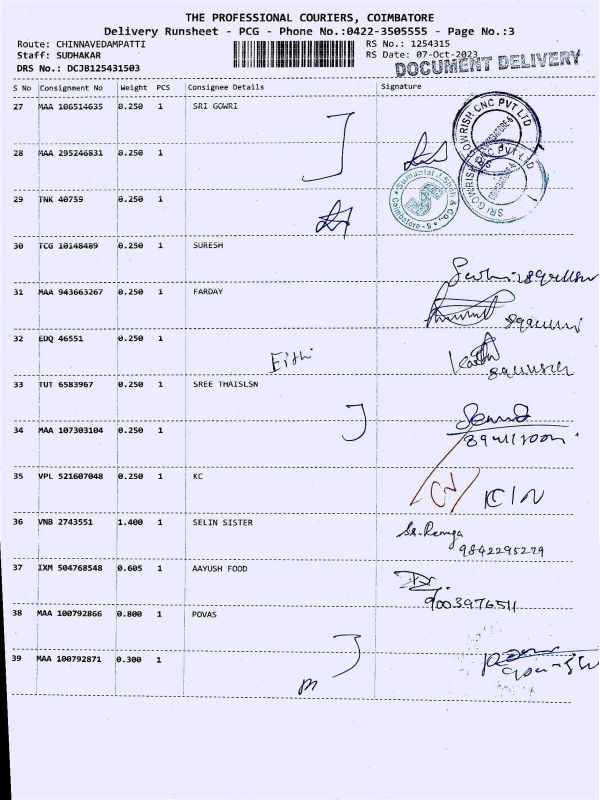 THE PROFESSIONAL COURIERS, COIMBATORE
Delivery Runsheet - PCG - Phone No.:0422-3505555 - Page No.:3
Route: CHINNAVEDAMPATTI RS No.: 1254315
Staff: SUDHAKAR RS Date: 07-Oct-2023
DRS No.: DCJB125431503 DOCUMENT DELIVERY
S No Consignment No Weight PCS Consignee Details Signature
27 MAA 106514635 0.250 1 SRI GOWRI
28 MAA 295246831 0.250 1
29 TNK 40759 0.250 1
30 TCG 10148489 0.250 1 SURESH
31 MAA 943663267 0.250 1 FARDAY
32 EDQ 46551 0.250 1
33 TUT 6583967 0.250 1 SREE THAISLSN
34 MAA 107303104 0.250 1
35 VPL 521607048 0.250 1 KC
36 VNB 2743551 1.400 1 SELIN SISTER
9842295279
37 IXM 504768548 0.605 1 AAYUSH FOOD
9003976511
38 MAA 100792866 0.800 1 POVAS
39 MAA 100792871 0.300 1